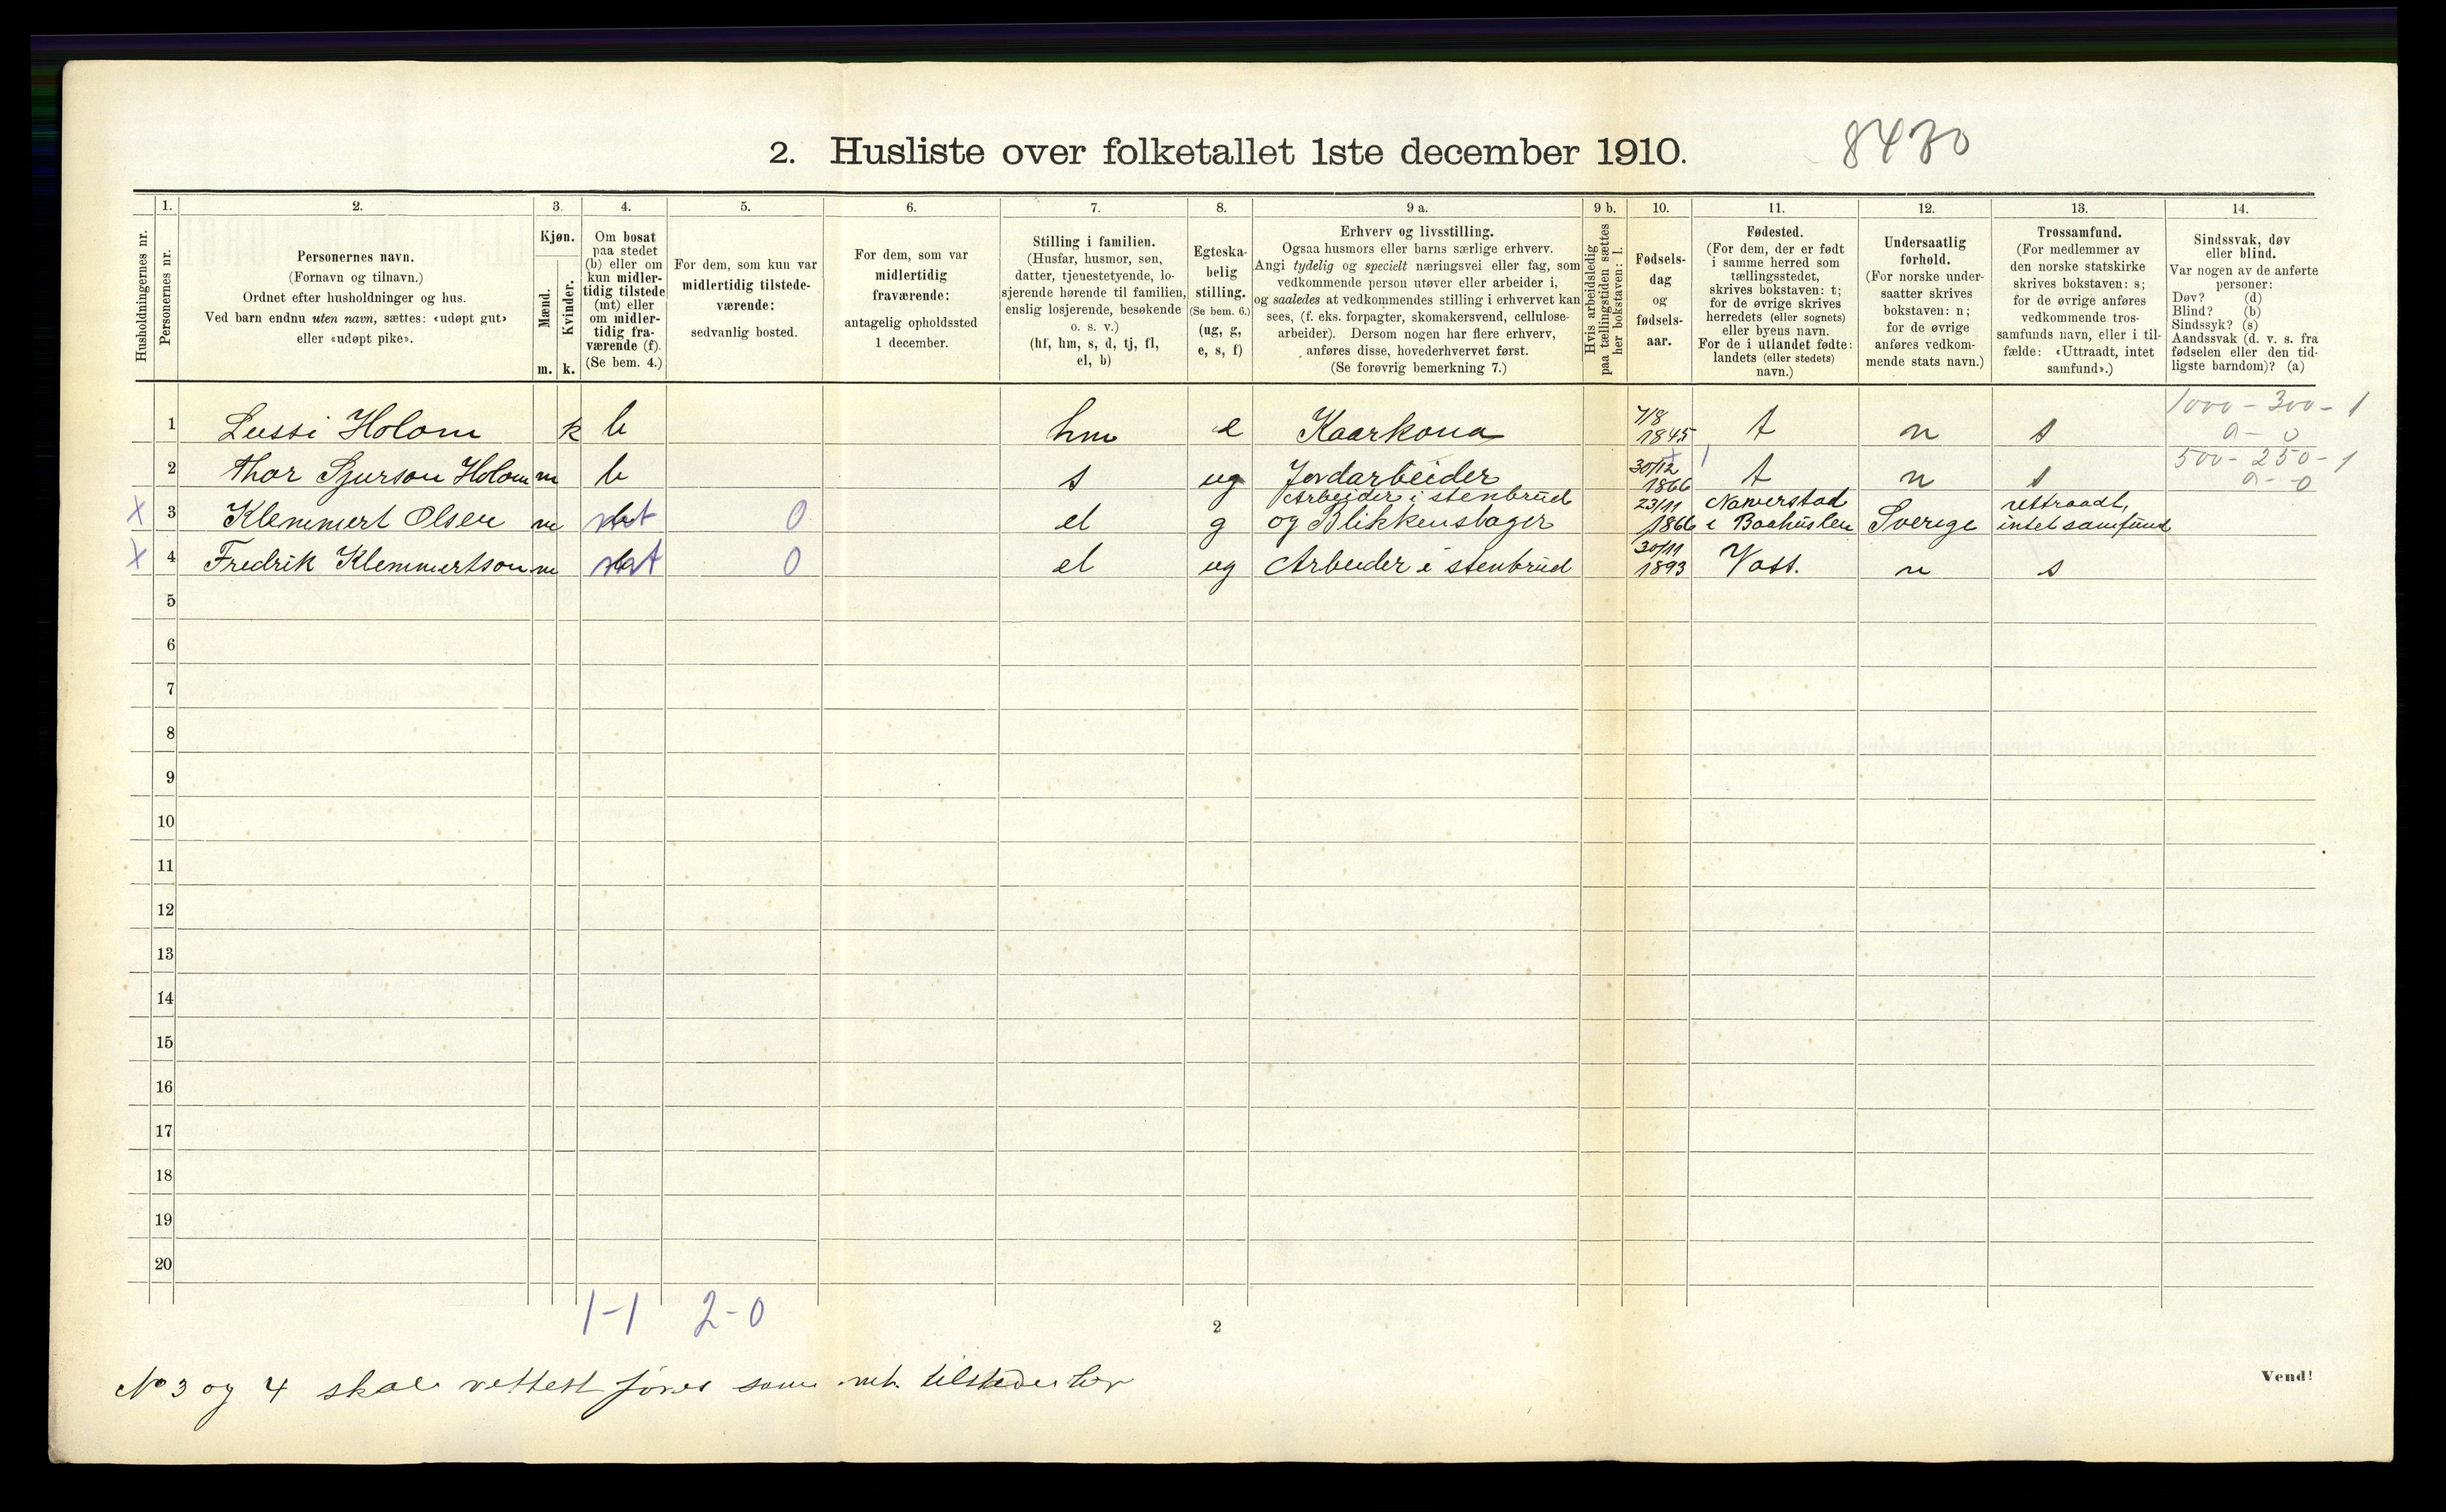 2. Husliste over folketallet 1ste december 1910.
8430
1. 2. 3. 4. 5. 6. 7. 8. 9 a. 9 b. 10. 11. 12. 13. 14.
Husholdningernes nr.
Personernes nr.
Personernes navn.
(Fornavn og tilnavn.)
Ordnet efter husholdninger og hus.
Ved barn endnu uten navn, sættes: «udøpt gut»
eller «udøpt pike».
Kjøn.
Mænd.
Kvinder.
m. k.
Om bosat
paa stedet
(b) eller om
kun midler-
tidig tilstede
(mt) eller
om midler-
tidig fra-
værende (f).
(Se bem. 4.)
For dem, som kun var
midlertidig tilstede-
værende:
sedvanlig bosted.
For dem, som var
midlertidig
fraværende:
antagelig opholdssted
1 december.
Stilling i familien.
(Husfar, husmor, søn,
datter, tjenestetyende, lo-
sjerende hørende til familien,
enslig losjerende, besøkende
o. s. v.)
(hf, hm, s, d, tj, fl,
el, b)
Egteska-
belig
stilling.
(Se bem. 6.)
(ug, g,
e, s, f)
Erhverv og livsstilling.
Ogsaa husmors eller barns særlige erhverv.
Angi tydelig og specielt næringsvei eller fag, som
vedkommende person utøver eller arbeider i,
og saaledes at vedkommendes stilling i erhvervet kan
sees, (f. eks. forpagter, skomakersvend, cellulose-
arbeider). Dersom nogen har flere erhverv,
anføres disse, hovederhvervet først.
(Se forøvrig bemerkning 7.)
Hvis arbeidsledig
paa tællingstiden sættes
her bokstaven: l.
Fødsels-
dag
og
fødsels-
aar.
Fødested.
(For dem, der er født
i samme herred som
tællingsstedet,
skrives bokstaven: t;
for de øvrige skrives
herredets (eller sognets)
eller byens navn.
For de i utlandet fødte:
landets (eller stedets)
navn.)
Undersaatlig
forhold.
(For norske under-
saatter skrives
bokstaven: n;
for de øvrige
anføres vedkom-
mende stats navn.)
Trossamfund.
(For medlemmer av
den norske statskirke
skrives bokstaven: s;
for de øvrige anføres
vedkommende tros-
samfunds navn, eller i til-
fælde: «Uttraadt, intet
samfund».)
Sindssvak, døv
eller blind.
Var nogen av de anførte
personer:
Døv? (d)
Blind? (b)
Sindssyk? (s)
Aandssvak (d. v. s. fra
fødselen eller den tid-
ligste barndom)? (a)
1000 - 300 - 1
1 Lussi Holom k b hm e Kaarkona 7/8 1845 t n s a - 0
500 - 250 - 1
2 Thor Sjurson Holom m b s ug Jordarbeider 30/12 1866 t n s a - 0
x 3 Klemmert Olsen m mt 0 el g Arbeider i stenbrud og Blikkenslager 23/11 1866 Naverstad i Baahuslen Sverige uttraadt, intet samfund
x 4 Fredrik Klemmertson m mt 0 el ug Arbeider i stenbrud 30/11 1893 Voss. n s
5
6
7
8
9
10
11
12
13
14
15
16
17
18
19
20
1-1 2-0
2
No 3 og 4 skal rettest føres som mt. tilstede her
Vend!